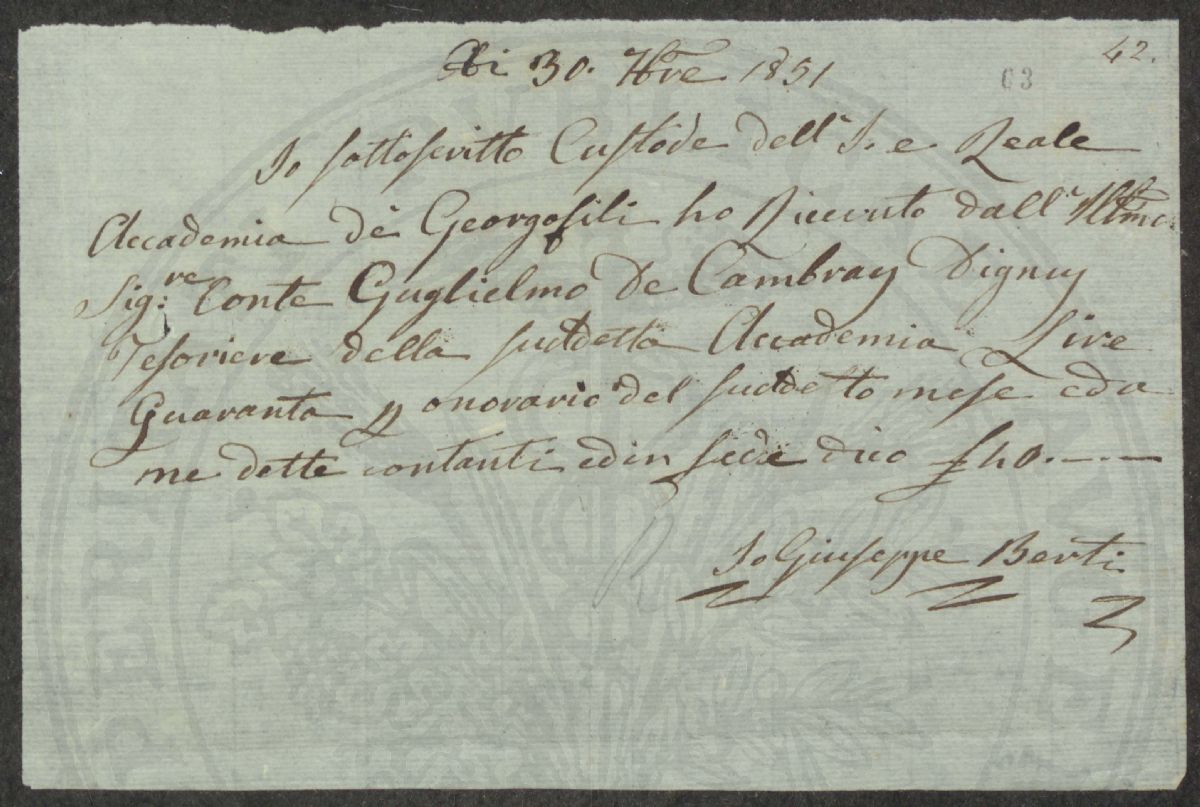 42.
63
Adi 30. 9bre 1851
Io sottoscritto Custode dell' I. e Reale
Accademia dè Georgofili ho Ricevuto dall' Illmo
Sig:re Conte Guglielmo De Cambray Digny
Tesoriere della suddetta Accademia Lire
Quaranta p onorario del suddetto mese ed a
me dette contanti ed in fede dico £ 40.—.—
Io Giuseppe Berti